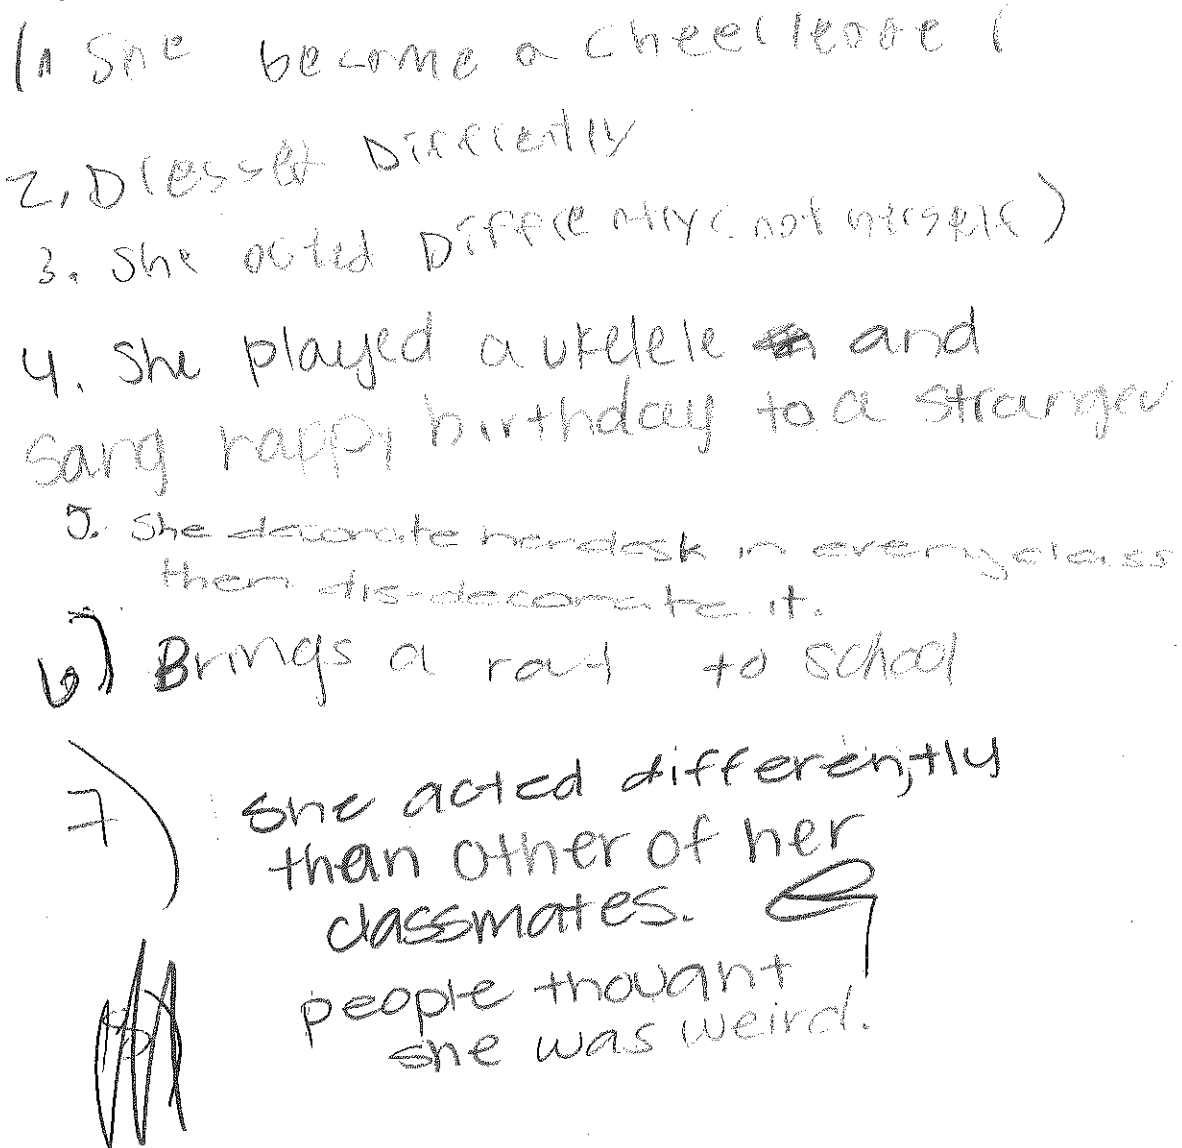 1. She become a cheerleader
2. Dressed Differently
3. She acted Differently (not herself)
4. She played a ukelele and
sang happy birthday to a stranger
5. She decorate her desk in every class
then dis-decorate it.
6) Brings a rat to school
7) She acted differently
than other of her
classmates.
people thought
she was weird.